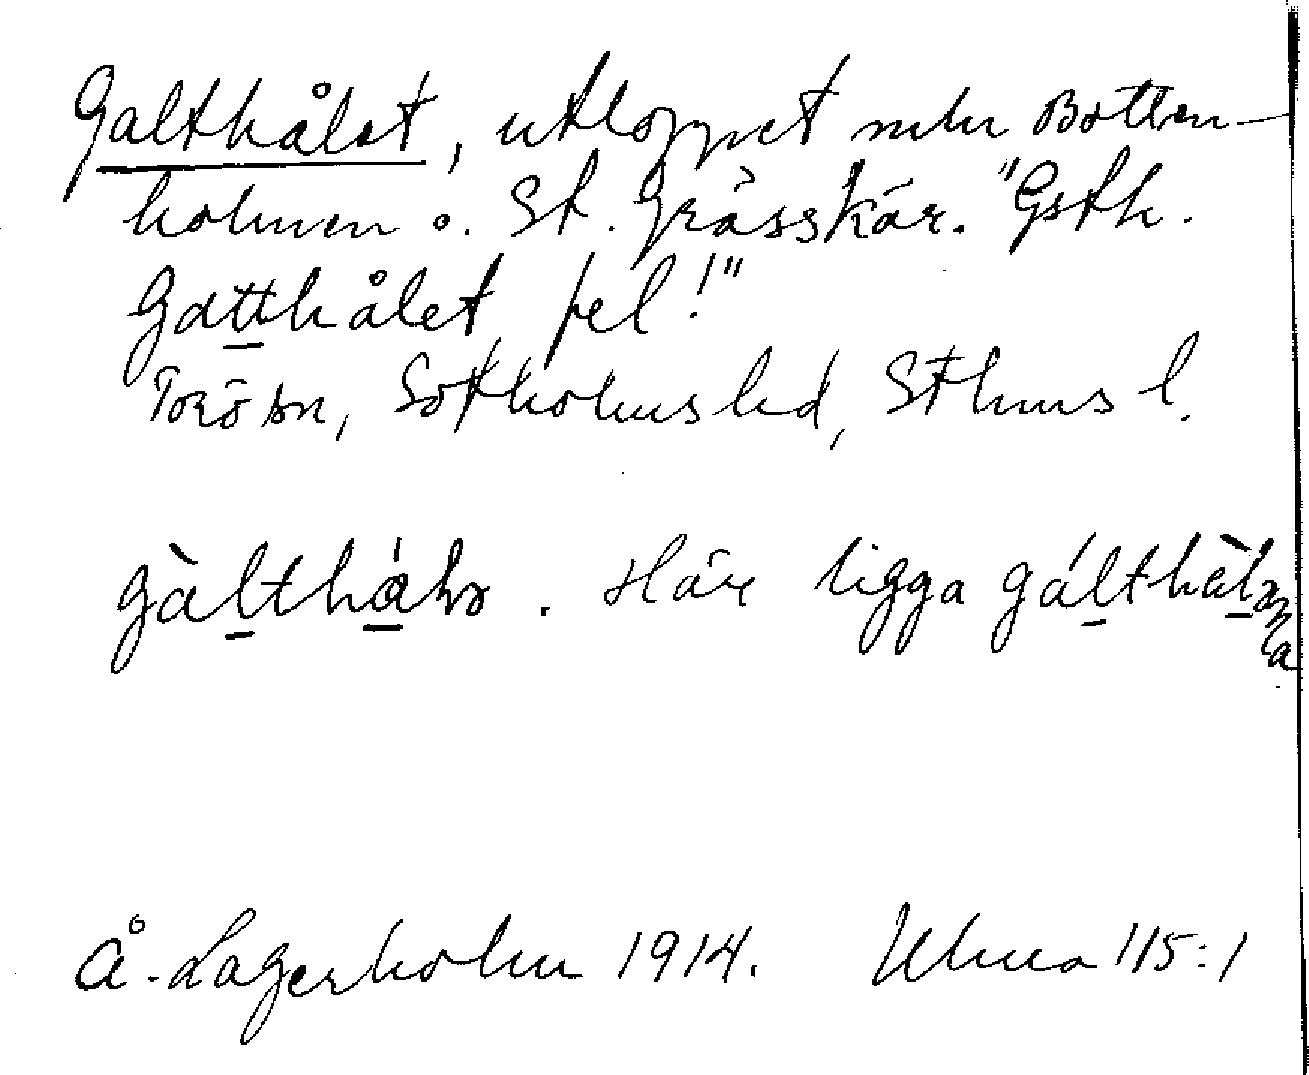 Galthålet, utloppet mln Botten-
holmen o. St. Grässkär. "Gstk.
Gatthålet, fel!"
Torö sn, Sotholms hd, Sthms l.
gàlthálə. Här ligga gálthàl
a
Å. Lagerholm 1914. Ulma 115:1